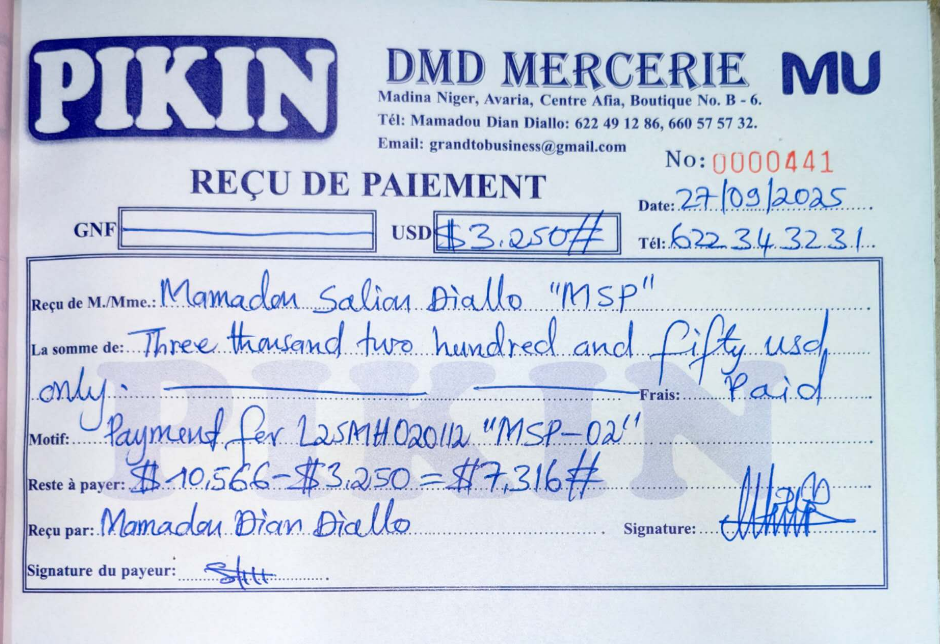 PIKIN
DMD MERCERIE
MU
Madina Niger, Avaria, Centre Afia, Boutique No. B - 6.
Tél: Mamadou Dian Diallo: 622 49 12 86, 660 57 57 32.
Email: grandtobusiness@gmail.com
No: 0000441
REÇU DE PAIEMENT
Date: 27/09/2025
GNF USD $3.250#
Tél: 622 34 32 31
Reçu de M./Mme.: Mamadou Saliou Diallo "MSP"
La somme de: Three thousand two hundred and fifty usd
only. Frais: Paid
Motif: Payment for L25MH020112 "MSP-02"
Reste à payer: $10,566-$3,250=$7,316#
Reçu par: Mamadou Dian Diallo Signature:
Signature du payeur:
PIKIN